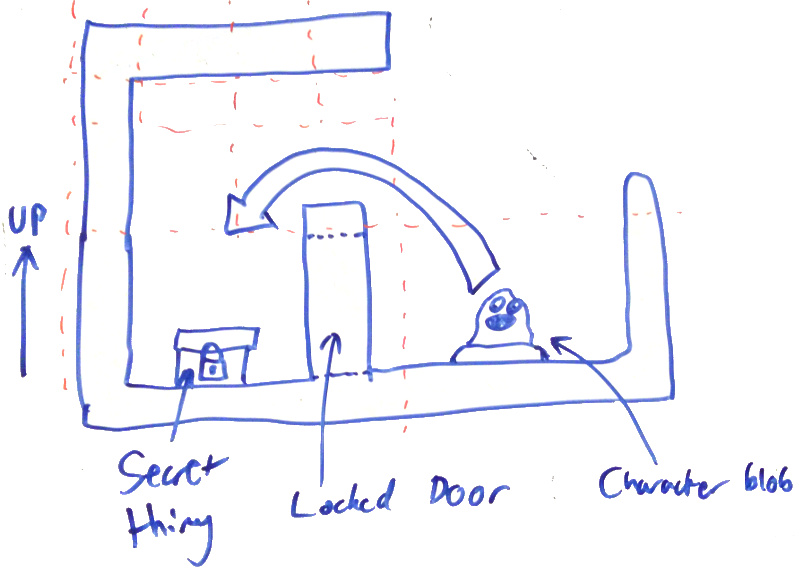 UP
Secret
thing
Locked Door
Character blob